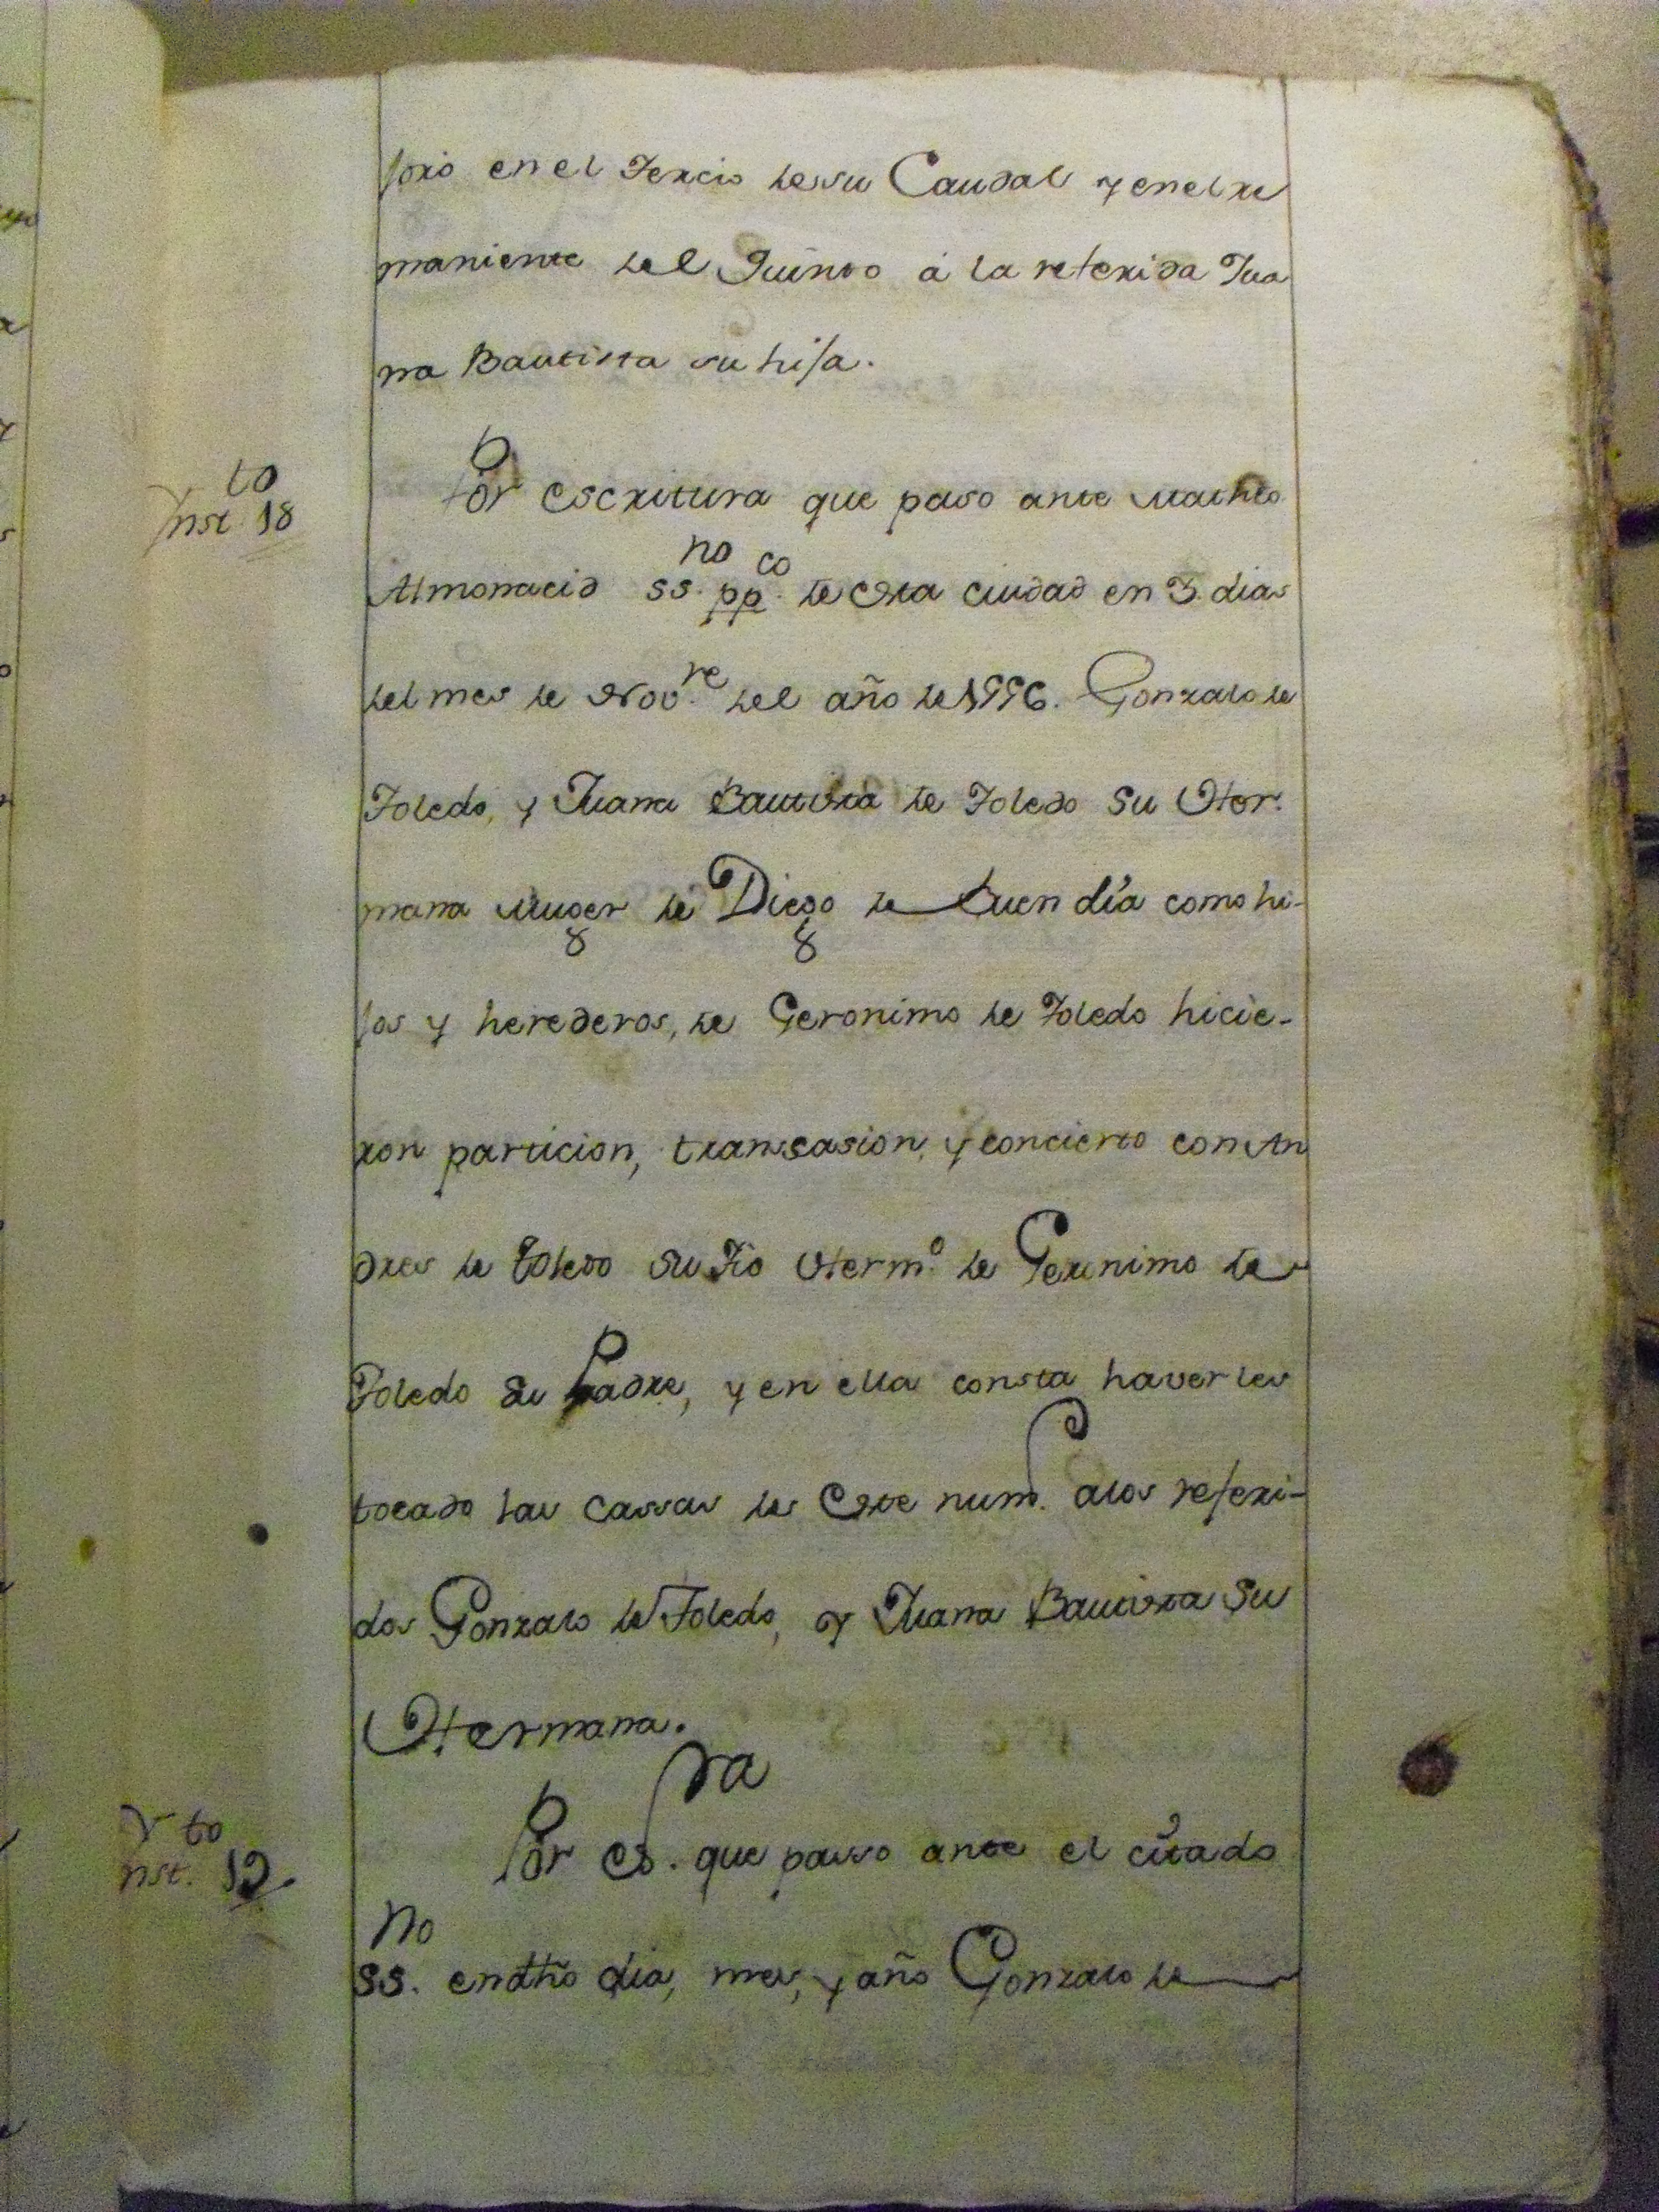 joró en el Tercio de su Caudal y en el re
maniente del Quinto á la referida Jua
na Bautista su hija.
Ynst.to 18
Por escritura que paso ante Matheo
Almonacid ss.no pp.co de esta ciudad en 3 dias
del mes de Nov.re del año de 1556. Gonzalo de
Toledo, y Juana Bautista de Toledo su Her-
mana Muger de Diego de Buendía como hi-
jos y herederos, de Geronimo de Toledo hicie-
ron particion, transasion, y concierto con An
dres de Toledo su Tio Herm.o de Geronimo de
Toledo su Padre, y en ella consta haverles
tocado las Cassas de este num.o a los referi-
dos Gonzalo de Toledo, y Juana Bautista su
Hermana.
Ynst.to 19.
Por es.ra que passo ante el citado
ss.no en dho dia, mes, y año Gonzalo de